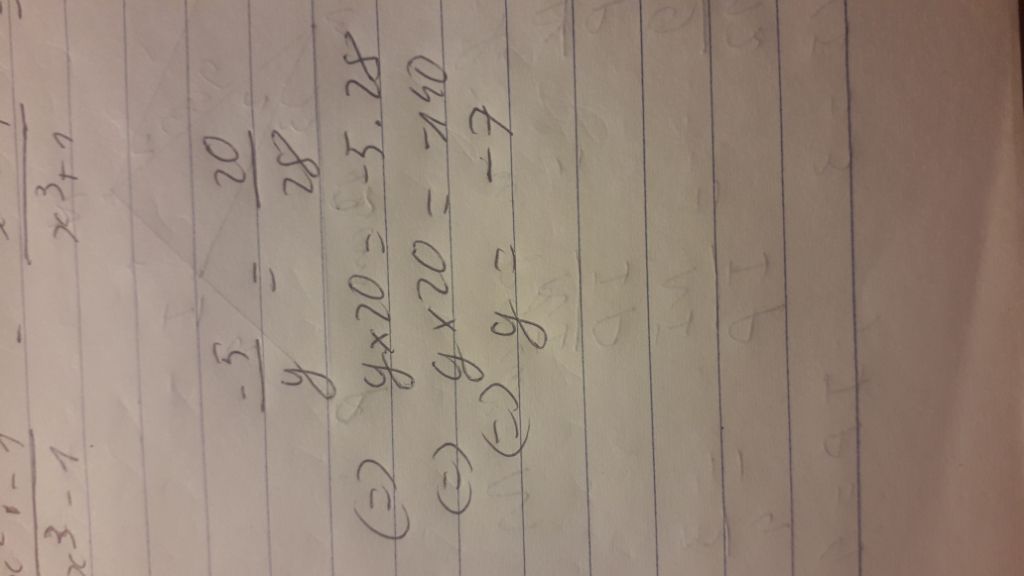 x³ - 1 x³ + 1
-5 = 20
y 28
(=) y x 20 = -5 . 28
(=) y x 20 = -140
(=) y = -7